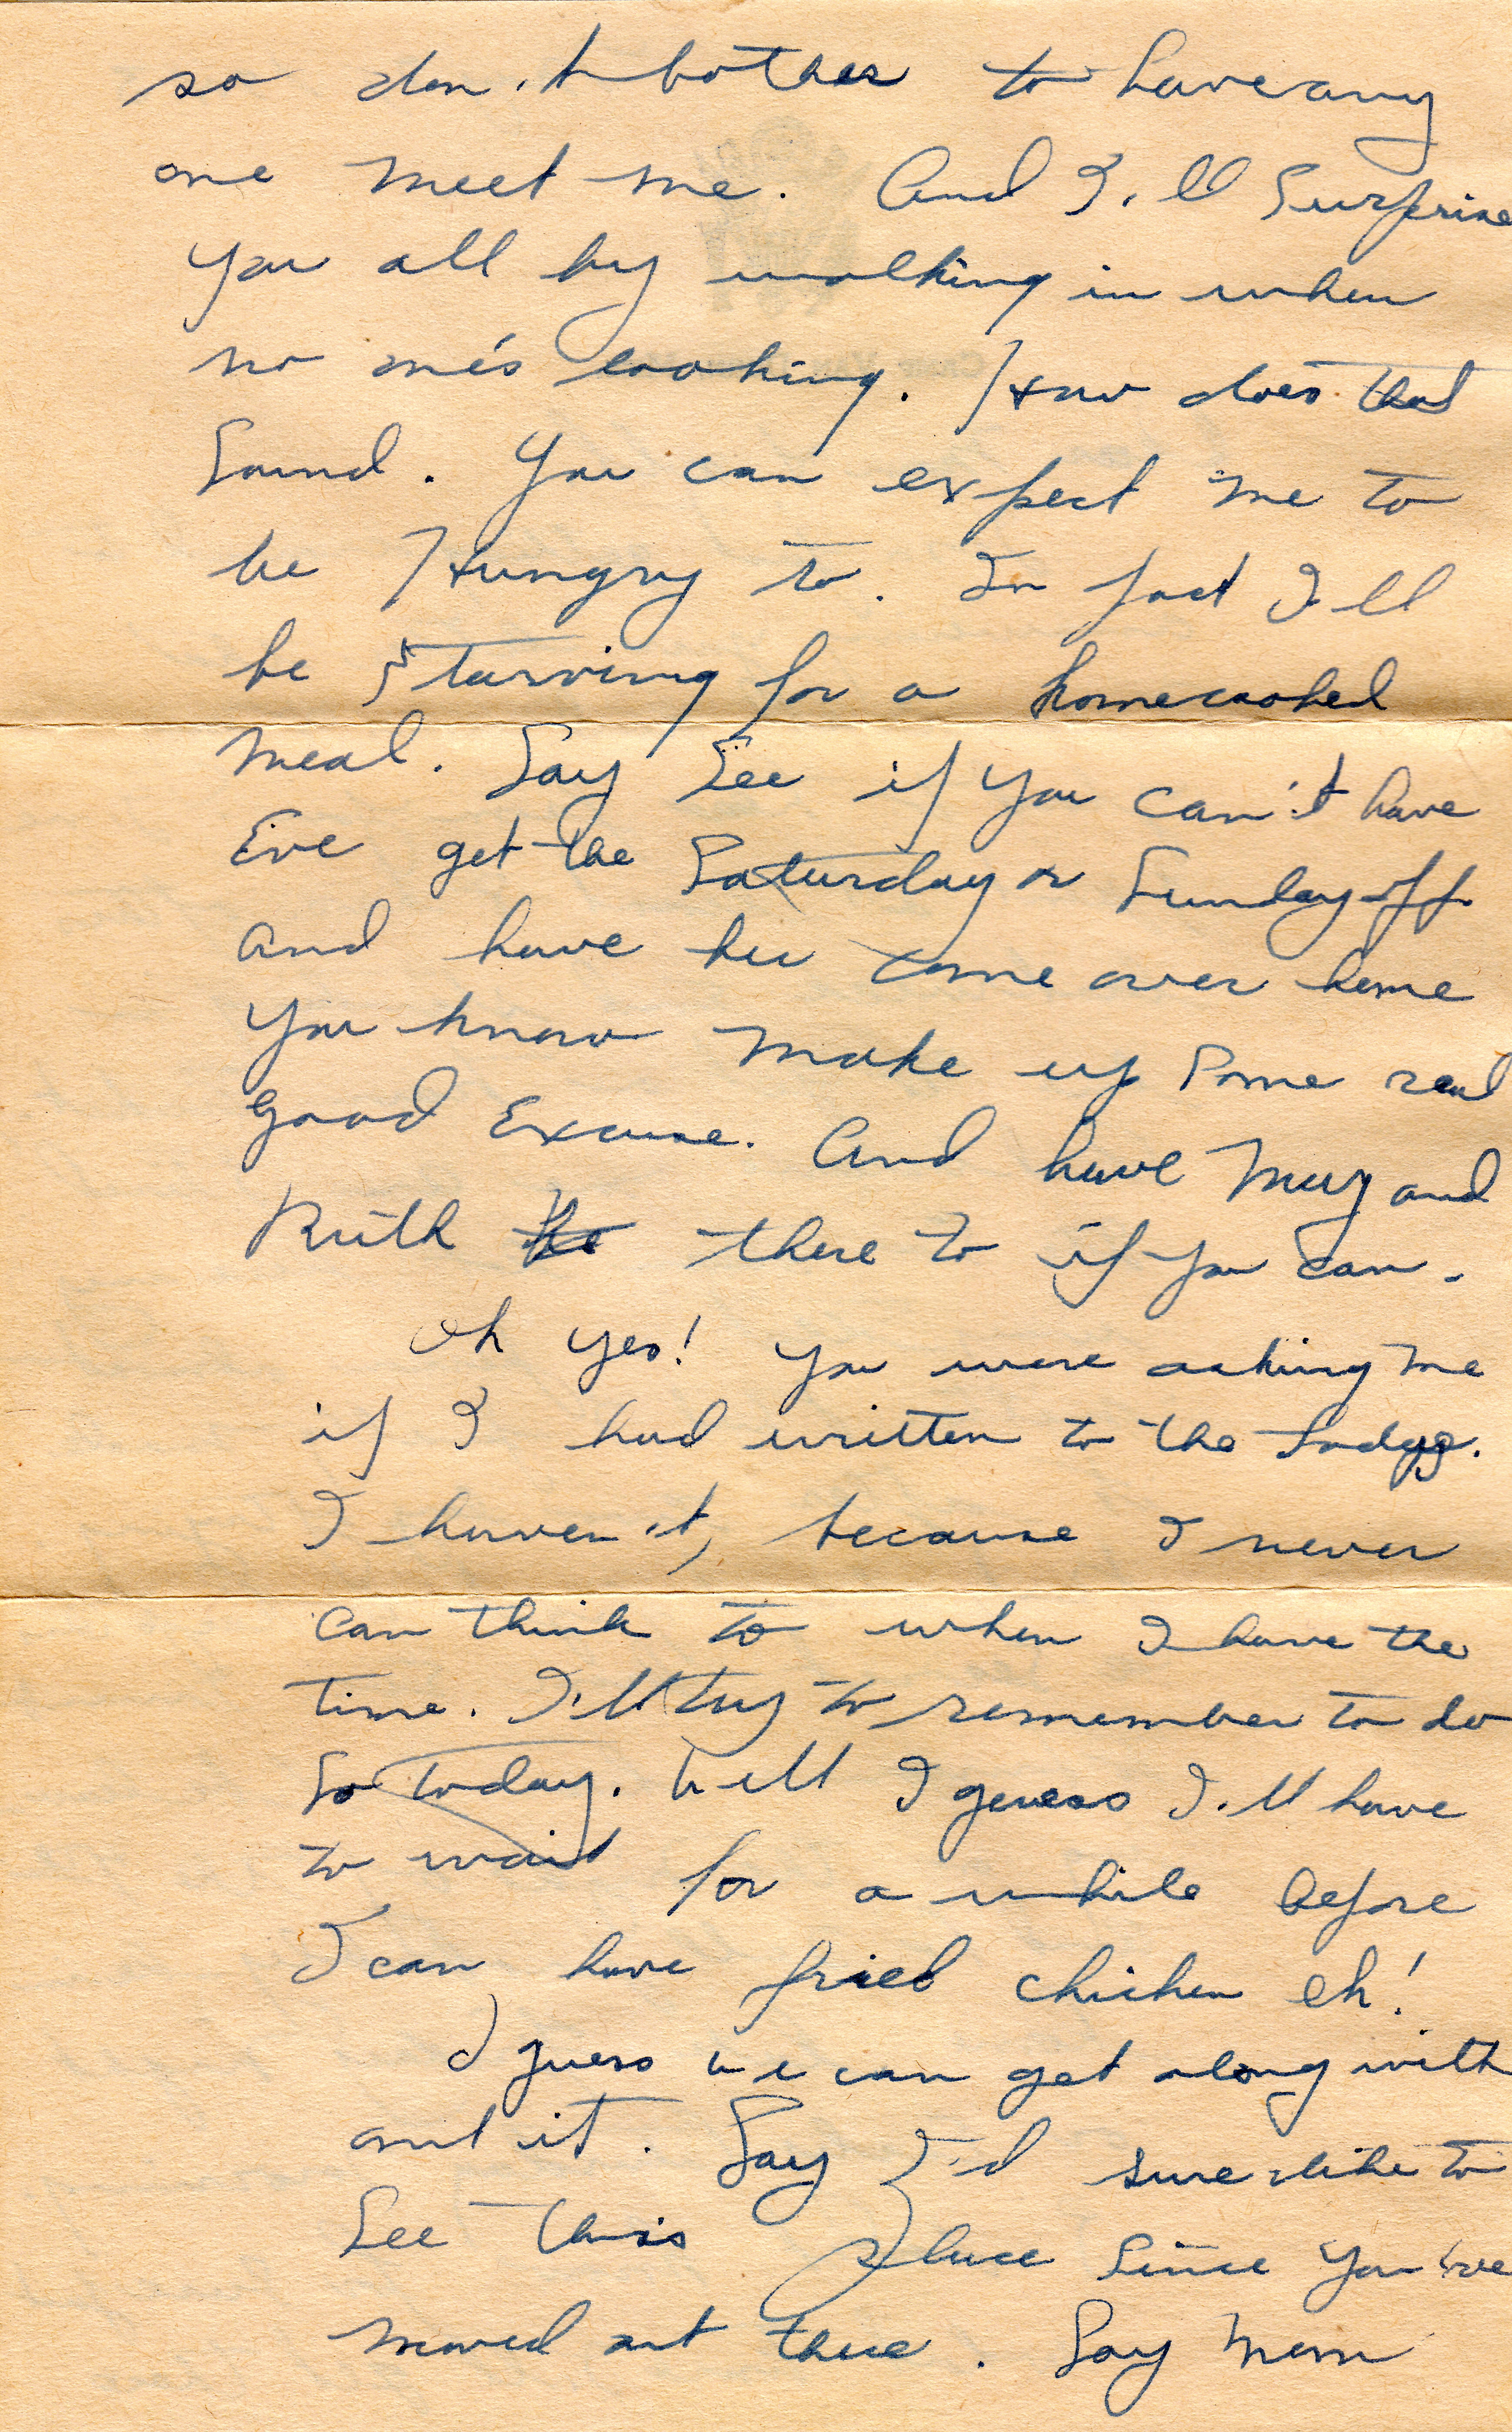 so don't bother to have any
one meet me. And I'll Surprise
you all by walking in when
no one's looking. How does that
Sound. You can expect me to
be Hungry to. In fact I'll
be Starving for a homecooked
meal. Say See if you can't have
Eve get the Saturday or Sunday off
and have her come over home
you know make up some real
good Excuse. And have Muz and
Ruth there to if you can.
Oh yes! you were asking me
if I had written to the Lodge.
I haven't, because I never
can think to when I have the
time. I'll try to remember to do
So today. Well I guess I'll have
to wait for a while before
I can have fried chicken eh!
I guess we can get along with
out it. Say I'd sure like to
See this place since you've
moved out there. Say Mom